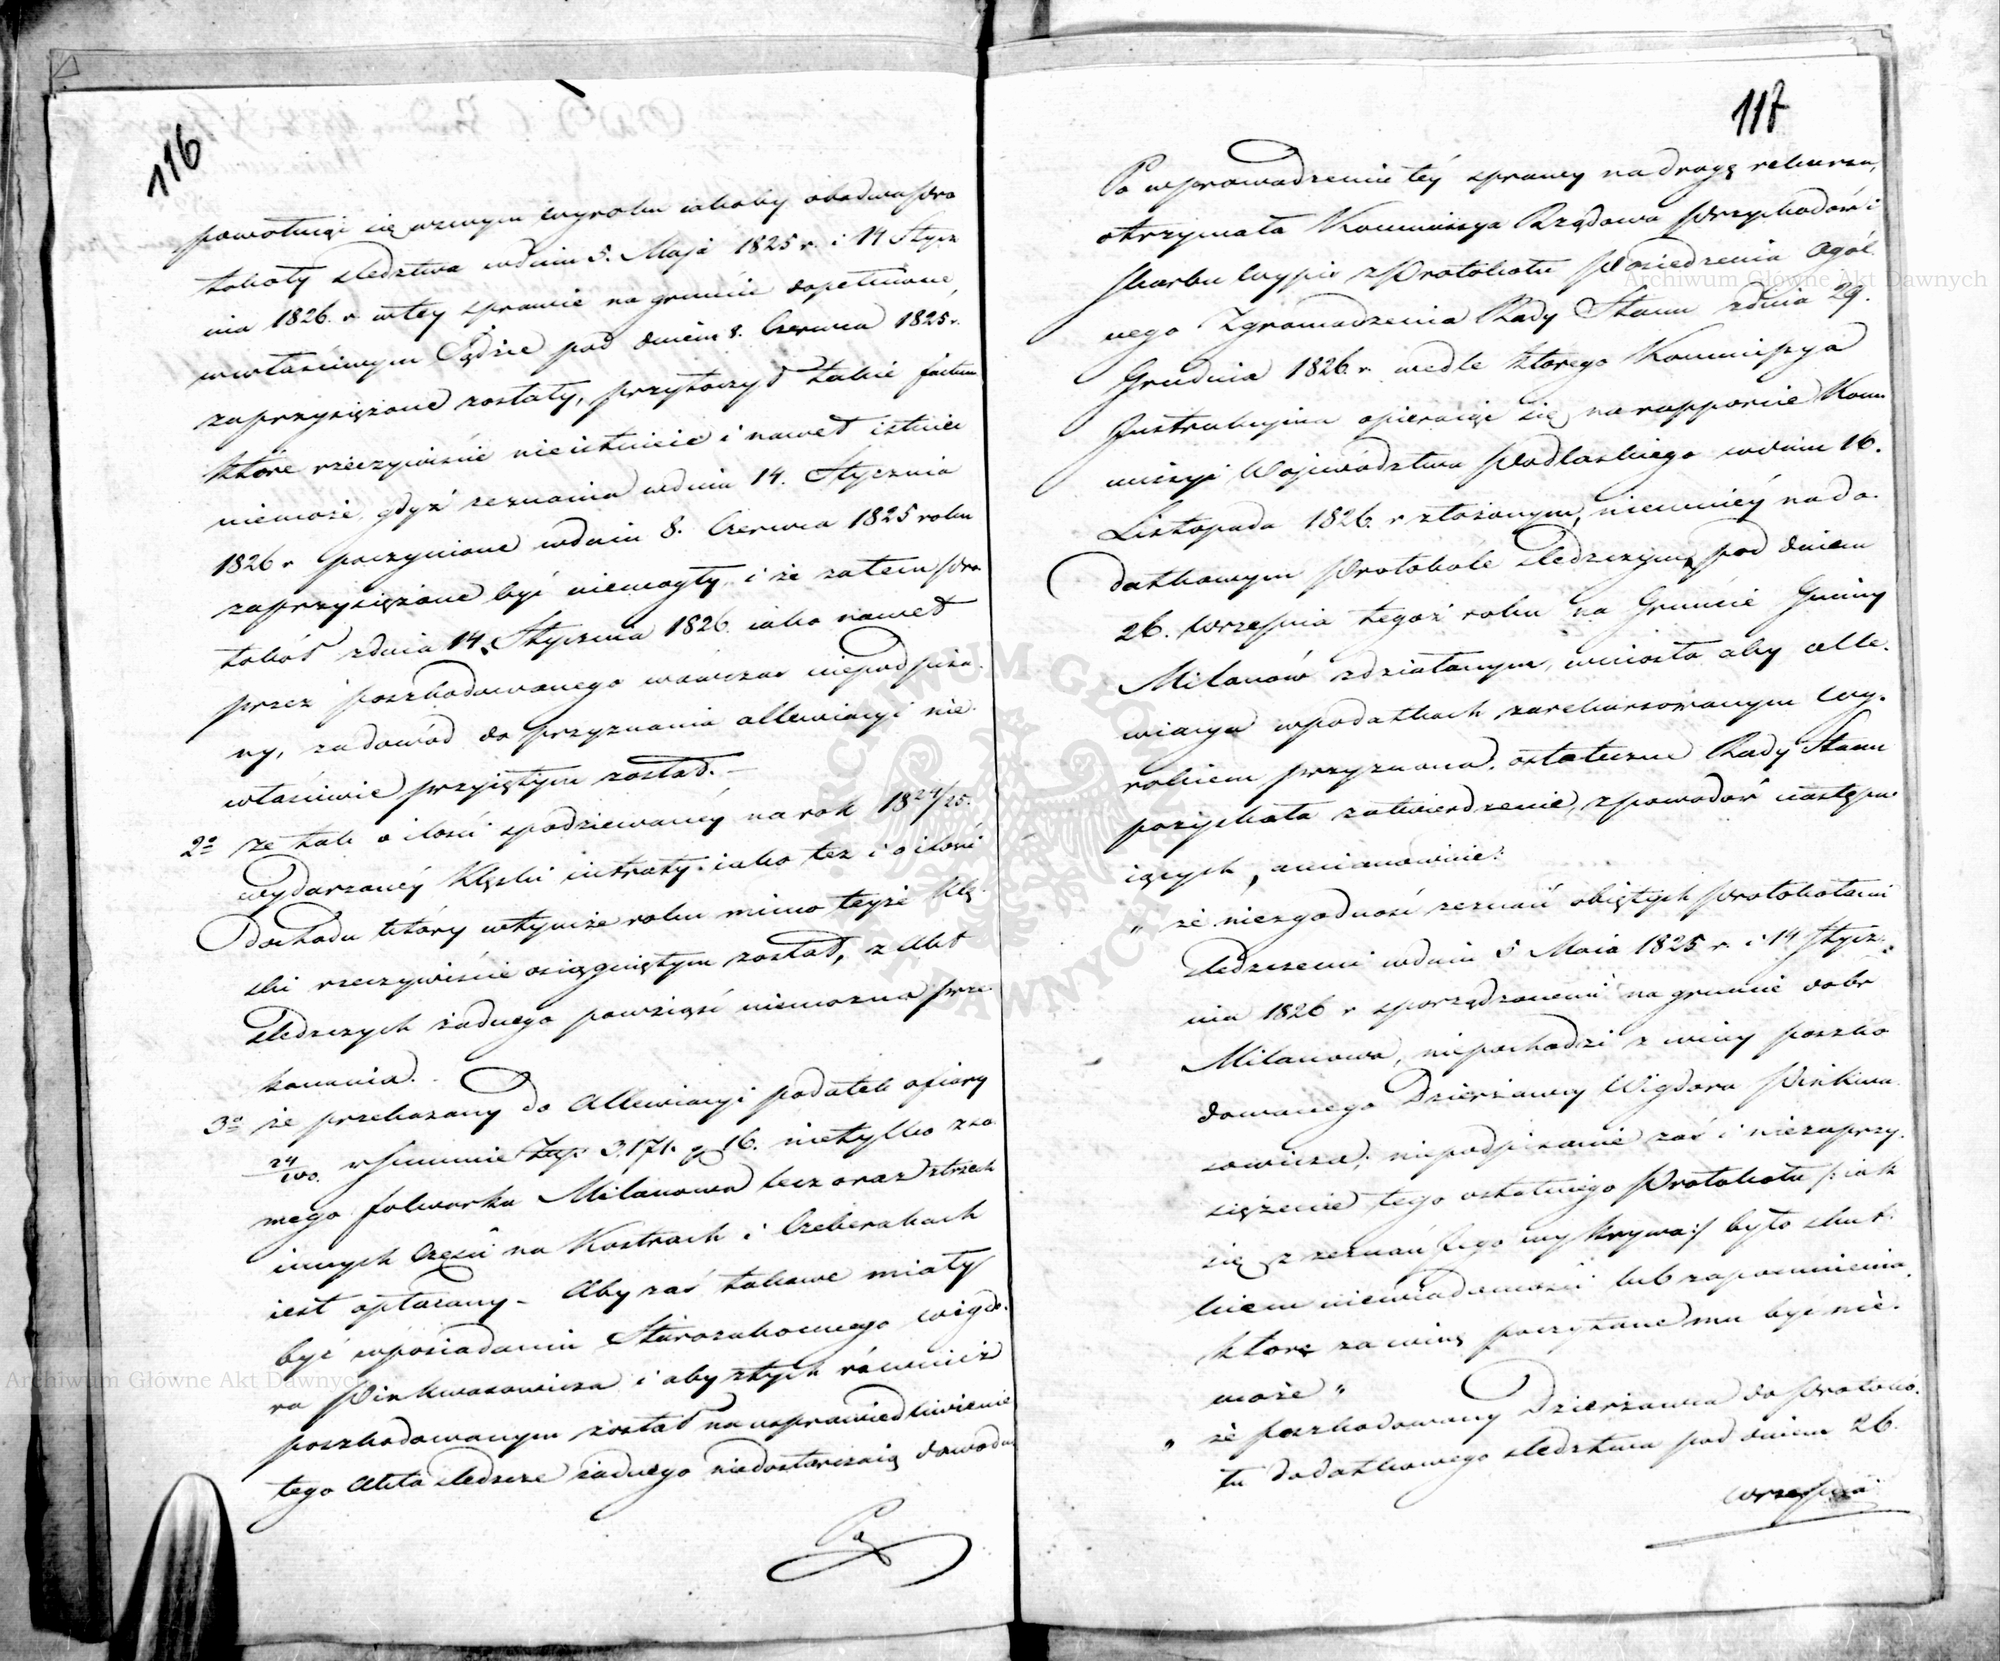 116
powołując się w swym wyroku iakoby obadwa Pro
tokoły śledztwa w dniu 5. Maja 1825 r. i 14 Stycz
nia 1826. r. w tey sprawie na gruncie dopełnione,
w właściwym Sądzie pod dniem 8. Czerwca 1825 r.
zaprzysiężone zostały, przytoczył takie factum
które rzeczywiście nieistnieie i nawet istnieć
niemoże, gdyż zeznania w dniu 14. Stycznia
1826 r poczynione w dniu 8. Czerwca 1825 roku
zaprzysiężone być niemogły i że zatem Pro
tokół z dnia 14. Stycznia 1826 iako nawet
przez poszkodowanego wówczas niepodpisa-
ny, za dowód do przyznania allewiacyi nie-
właściwie przyiętym został. –
2o że tak o ilości spodziewaney na rok 1824/25.
wydarzoney Klęski intraty iako też i o ilości
Dochodu który w tymże roku mimo teyże Klę-
ski rzeczywiście osiągniętym został, z Akt
śledczych żadnego powziąść niemożna prze-
konania. –
3o że przekazany do Allewiacyi podatek ofiary
24/100. w Summie Złp. 3.171. g 16. nietylko z sa
mego folwarku Milanowa lecz oraz z trzech
innych Części na Kostrach i Czeberakach
iest opłacany – Aby zaś takowe miały
być w posiadaniu Starozakonnego Wigdo-
ra Pinkwasowicza i aby z tych również
poszkodowanym został na usprawiedliwienie
tego Akta śledcze żadnego niedostarczaią dowodu
Po
117
Po wprowadzeniu téy sprawy na drogę rekursu,
otrzymała Kommissya Rządowa Przychodów i
Skarbu Wypis z Protokołu Posiedzenia Ogól
nego Zgromadzenia Rady Stanu z dnia 29.
Grudnia 1826 r. wedle którego Kommissya
Instrukcyina opieraiąc się na rapporcie Kom
missyi Województwa Podlaskiego w dniu 16.
Listopada 1826. r złożonym, niemniéy na do-
datkowym Protokóle śledczym pod dniem
26. Września tegoż roku na Gruncie Gminy
Milanów zdziałanym, wniosła aby alle-
wiacya w podatkach zarekursowanym Wy-
rokiem przyznana, ostateczne Rady Stanu
pozyskała zatwierdzenie, z powodów następu
iących, a mianowicie:
„ że niezgodność zeznań obiętych Protokołami
śledczemi w dniu 5 Maia 1825 r. i 14 Stycz-
nia 1826 r sporządzonemi na gruncie dobr
Milanowa, niepochodzi z winy poszko
dowanego Dzierżawcy Wigdora Pinkwa
sowicza; niepodpisanie zaś i niezaprzy-
siężenie tego ostatniego Protokołu /: iak
się z zeznań Jego wykrywa :/ było skut-
kiem niewiadomości lub zapomnienia
które za winę poczytane mu być nie-
może „
„ że poszkodowany Dzierżawca do Protokó-
łu dodatkowego śledztwa pod dniem 26.
Września